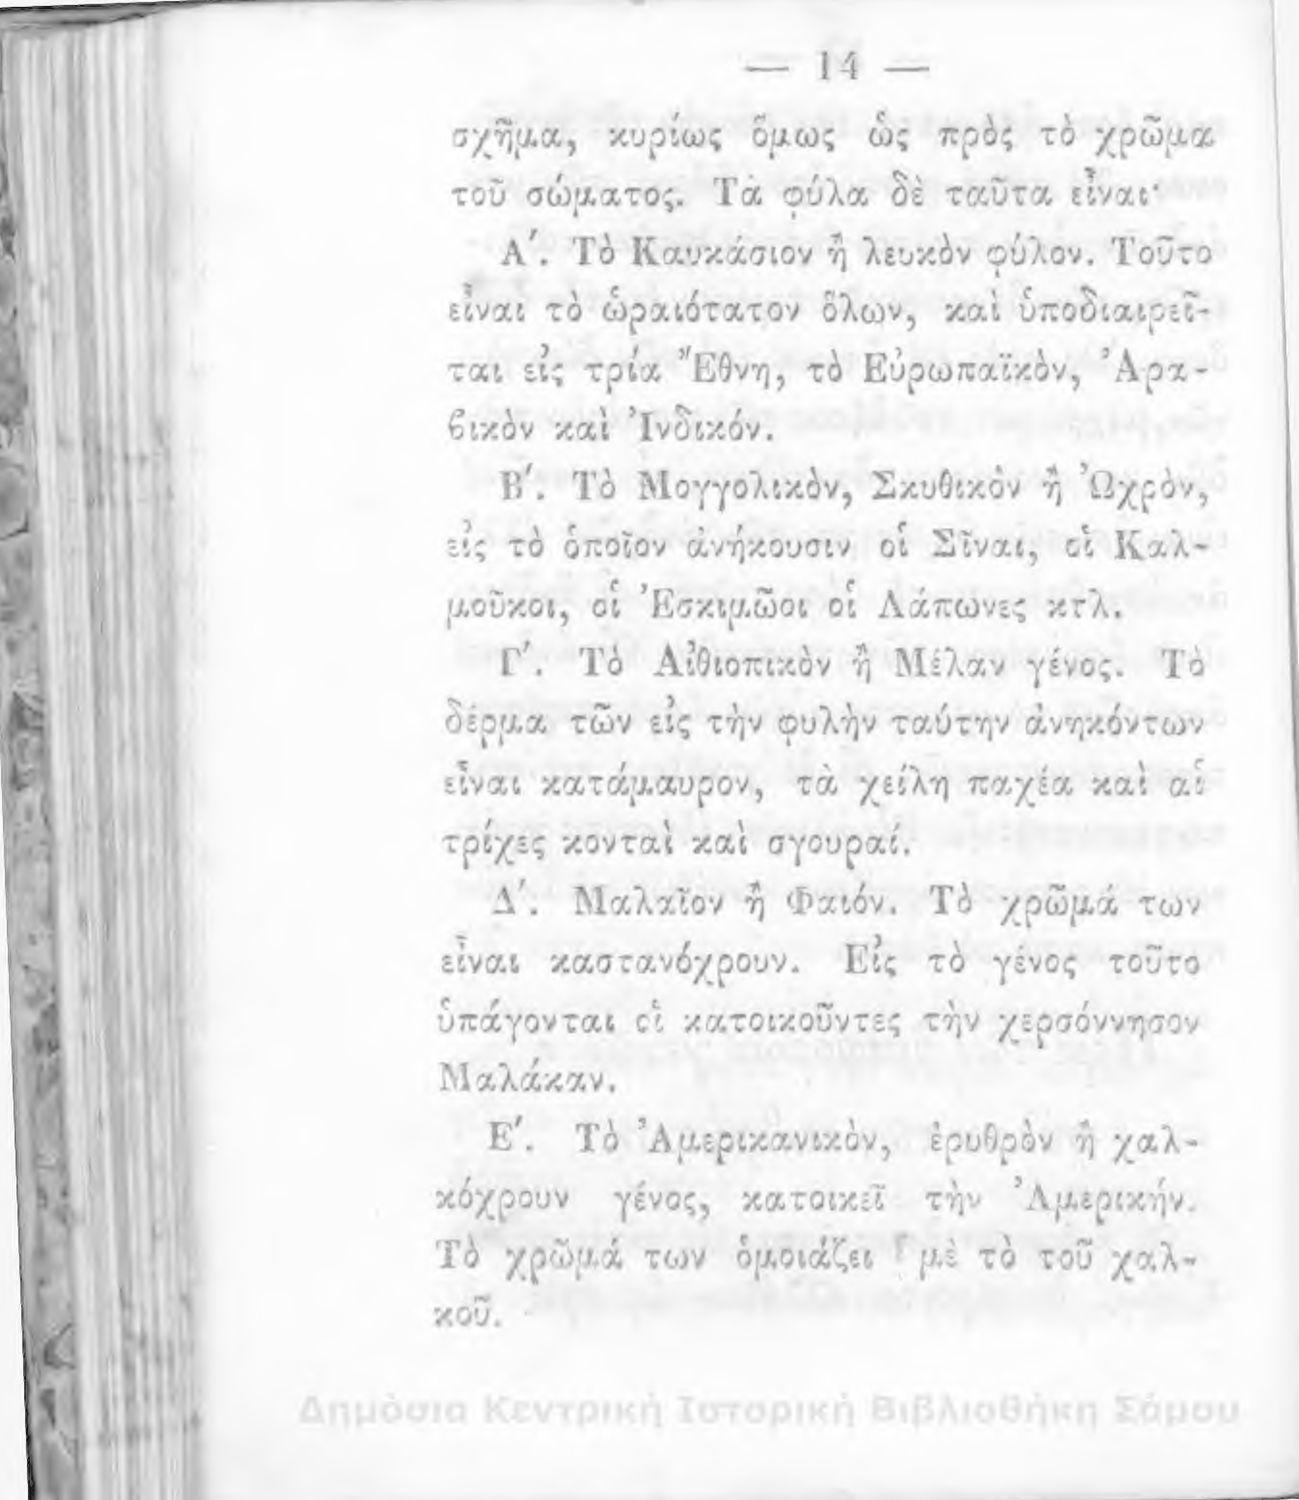 — 14 —
σχῆμα, κυρίως ὅμως ὡς πρὸς τὸ χρῶμα
τοῦ σώματος. Τὰ φύλα δὲ ταῦτα εἶναι·
Α′. Τὸ Καυκάσιον ἢ λευκὸν φύλον. Τοῦτο
εἶναι τὸ ὡραιότατον ὅλων, καὶ ὑποδιαιρεῖ-
ται εἰς τρία Ἔθνη, τὸ Εὐρωπαϊκὸν, Ἀρα-
ϐικὸν καὶ Ἰνδικόν.
Β′. Τὸ Μογγολικὸν, Σκυθικὸν ἢ Ὠχρὸν,
εἰς τὸ ὁποῖον ἀνήκουσιν οἱ Σῖναι, οἱ Καλ-
μοῦκοι, οἱ Ἐσκιμῶοι οἱ Λάπωνες κτλ.
Γ′. Τὸ Αἰθιοπικὸν ἢ Μέλαν γένος. Τὸ
δέρμα τῶν εἰς τὴν φυλὴν ταύτην ἀνηκόντων
εἶναι κατάμαυρον, τὰ χείλη παχέα καὶ αἱ
τρίχες κονταὶ καὶ σγουραί.
Δ′. Μαλαῖον ἢ Φαιόν. Τὸ χρῶμά των
εἶναι καστανόχρουν. Εἰς τὸ γένος τοῦτο
ὑπάγονται οἱ κατοικοῦντες τὴν χερσόννησον
Μαλάκαν.
Ε′. Τὸ Ἀμερικανικὸν, ἐρυθρὸν ἢ χαλ-
κόχρουν γένος, κατοικεῖ τὴν Ἀμερικήν.
Τὸ χρῶμά των ὁμοιάζει μὲ τὸ τοῦ χαλ-
κοῦ.
Δημόσια Κεντρική Ιστορική Βιβλιοθήκη Σάμου